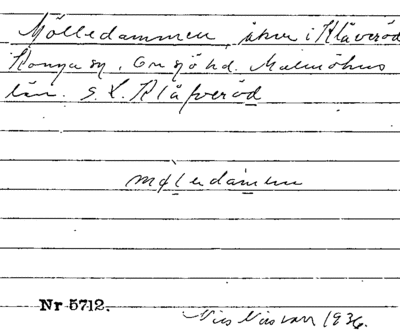 Mölledammen, åker i Klåveröd
Konga sn, Onsjö hd. Malmöhus
län. s. k. Klåveröd
møledàmen
Nr 5712.
Nils Nilsson 1936.